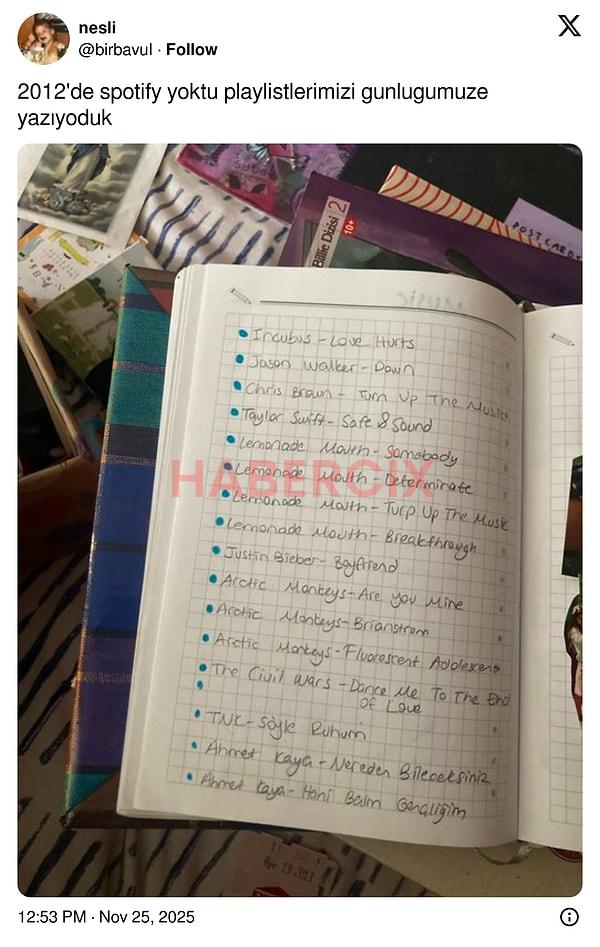 nesli
@birbavul · Follow
2012'de spotify yoktu playlistlerimizi gunlugumuze
yazıyoduk
Billie Dizisi 2
10+
POSTCARDS
MUSIC
Incubus - Love Hurts
Jason Walker - Down
Chris Brown - Turn Up The Music
Taylor Swift - Safe & Sound
Lemonade Mouth - Somebody
Lemonade Mouth - Determinate
Lemonade Mouth - Turp Up The Music
Lemonade Mouth - Breakthrough
Justin Bieber - Boyfriend
Arctic Monkeys - Are You Mine
Arctic Monkeys - Brianstrom
Arctic Monkeys - Fluorescent Adolescent
The Civil Wars - Dance Me To The End
Of Love
TNK - Söyle Ruhum
Ahmet Kaya - Nereden Bileceksiniz
Ahmet Kaya - Hani Benim Gençliğim
HABERCIX
Apr 19 2013
12:53 PM · Nov 25, 2025